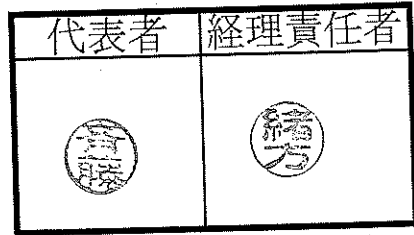 代表者 経理責任者
斉藤 緒方